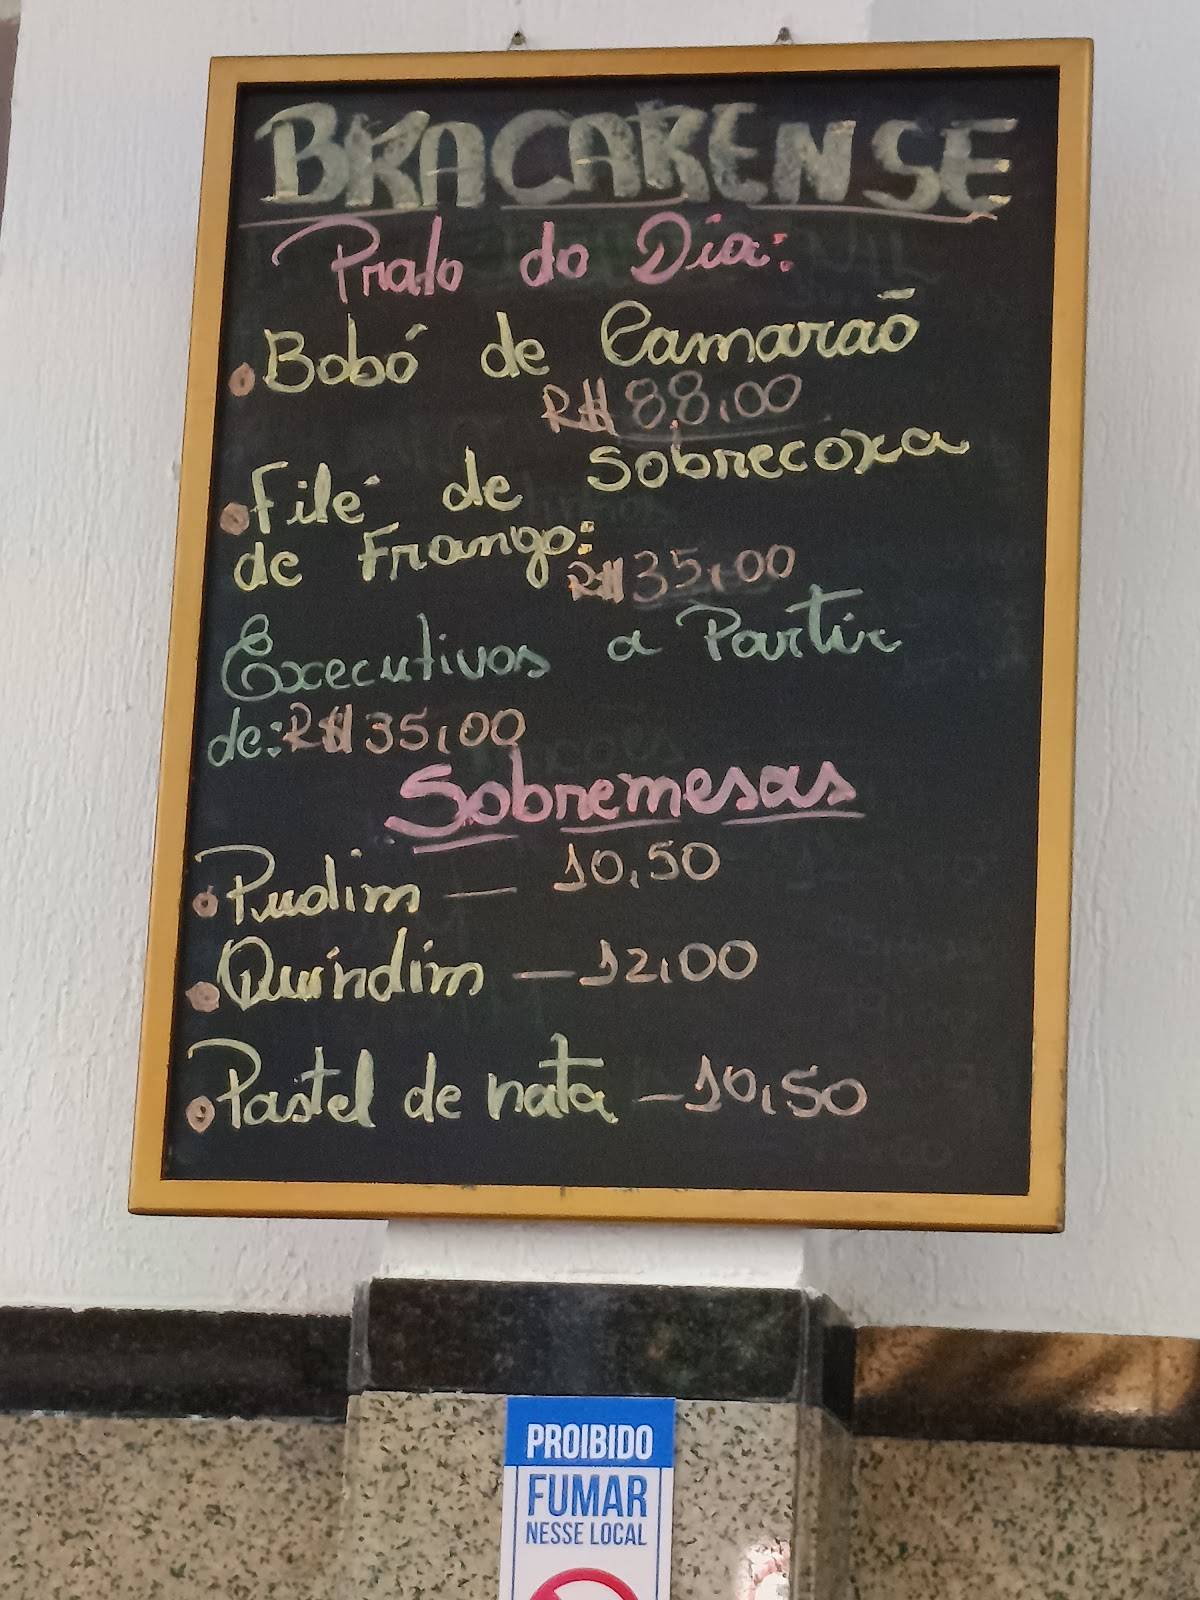 BRACARENSE
Prato do Dia:
Bobó de Camaraõ
R$ 88,00
Filé de Sobrecoxa
de Frango:
R$ 35,00
Executivos a Partir
de: R$ 35,00
Sobremesas
Pudim — 10,50
Quindim — 12,00
Pastel de nata — 10,50
PROIBIDO
FUMAR
NESSE LOCAL